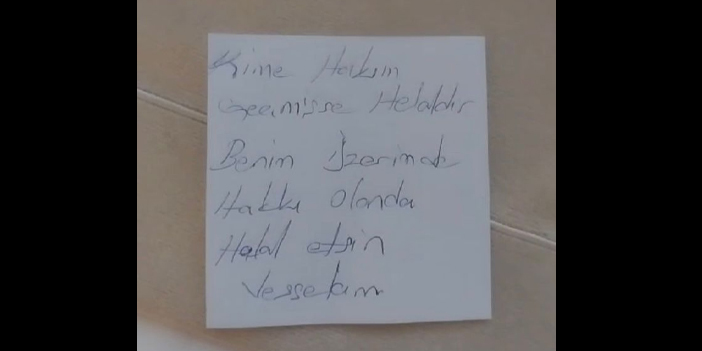 Kime Hakım
Geçmişse Helaldır
Benim Üzerimde
Hakkı Olanda
Halal etsin
Vesselam